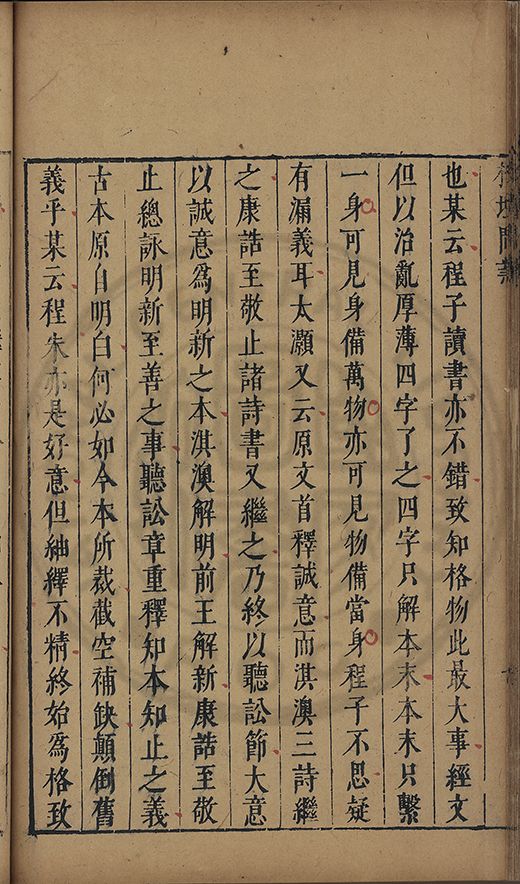 榕壇問業
也某云程子讀書亦不錯致知格物此最大事經文
但以治亂厚薄四字了之四字只解本末本末只繫
一身可見身備萬物亦可見物備當身程子不思疑
有漏義耳太灝又云原文首釋誠意而淇澳三詩繼
之康誥至敬止諸詩書又繼之乃終以聽訟節大意
以誠意爲明新之本淇澳解明前王解新康誥至敬
止總詠明新至善之事聽訟章重釋知本知止之義
古本原自明白何必如今本所裁截空補缺顛倒舊
義乎某云程朱亦是好意但紬繹不精終始爲格致